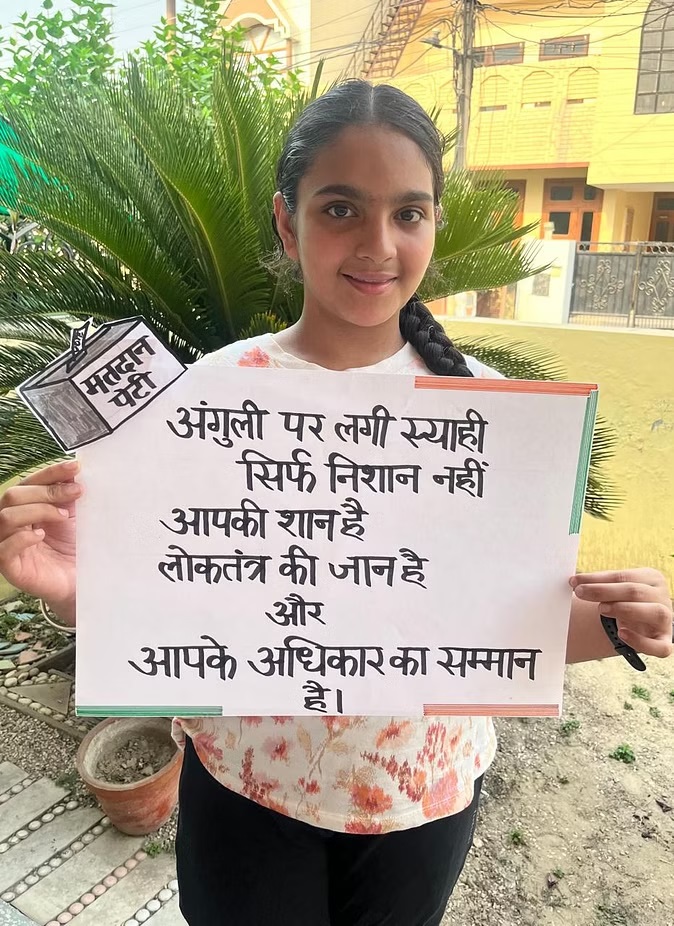 मतदान
पेटी
अंगुली पर लगी स्याही
सिर्फ निशान नहीं
आपकी शान है
लोकतंत्र की जान है
और
आपके अधिकार का सम्मान
है।